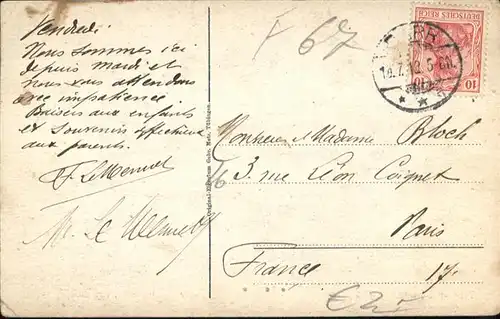 Vendredi
Nous sommes ici
depuis mardi et
nous vous attendons
avec impatience
Baisers aux enfants
et souvenirs affectueux
aux parents.
F 67
DEUTSCHES REICH
10
Monsieur et Madame Bloch
3, rue Léon Cogniet
Paris
France 17.